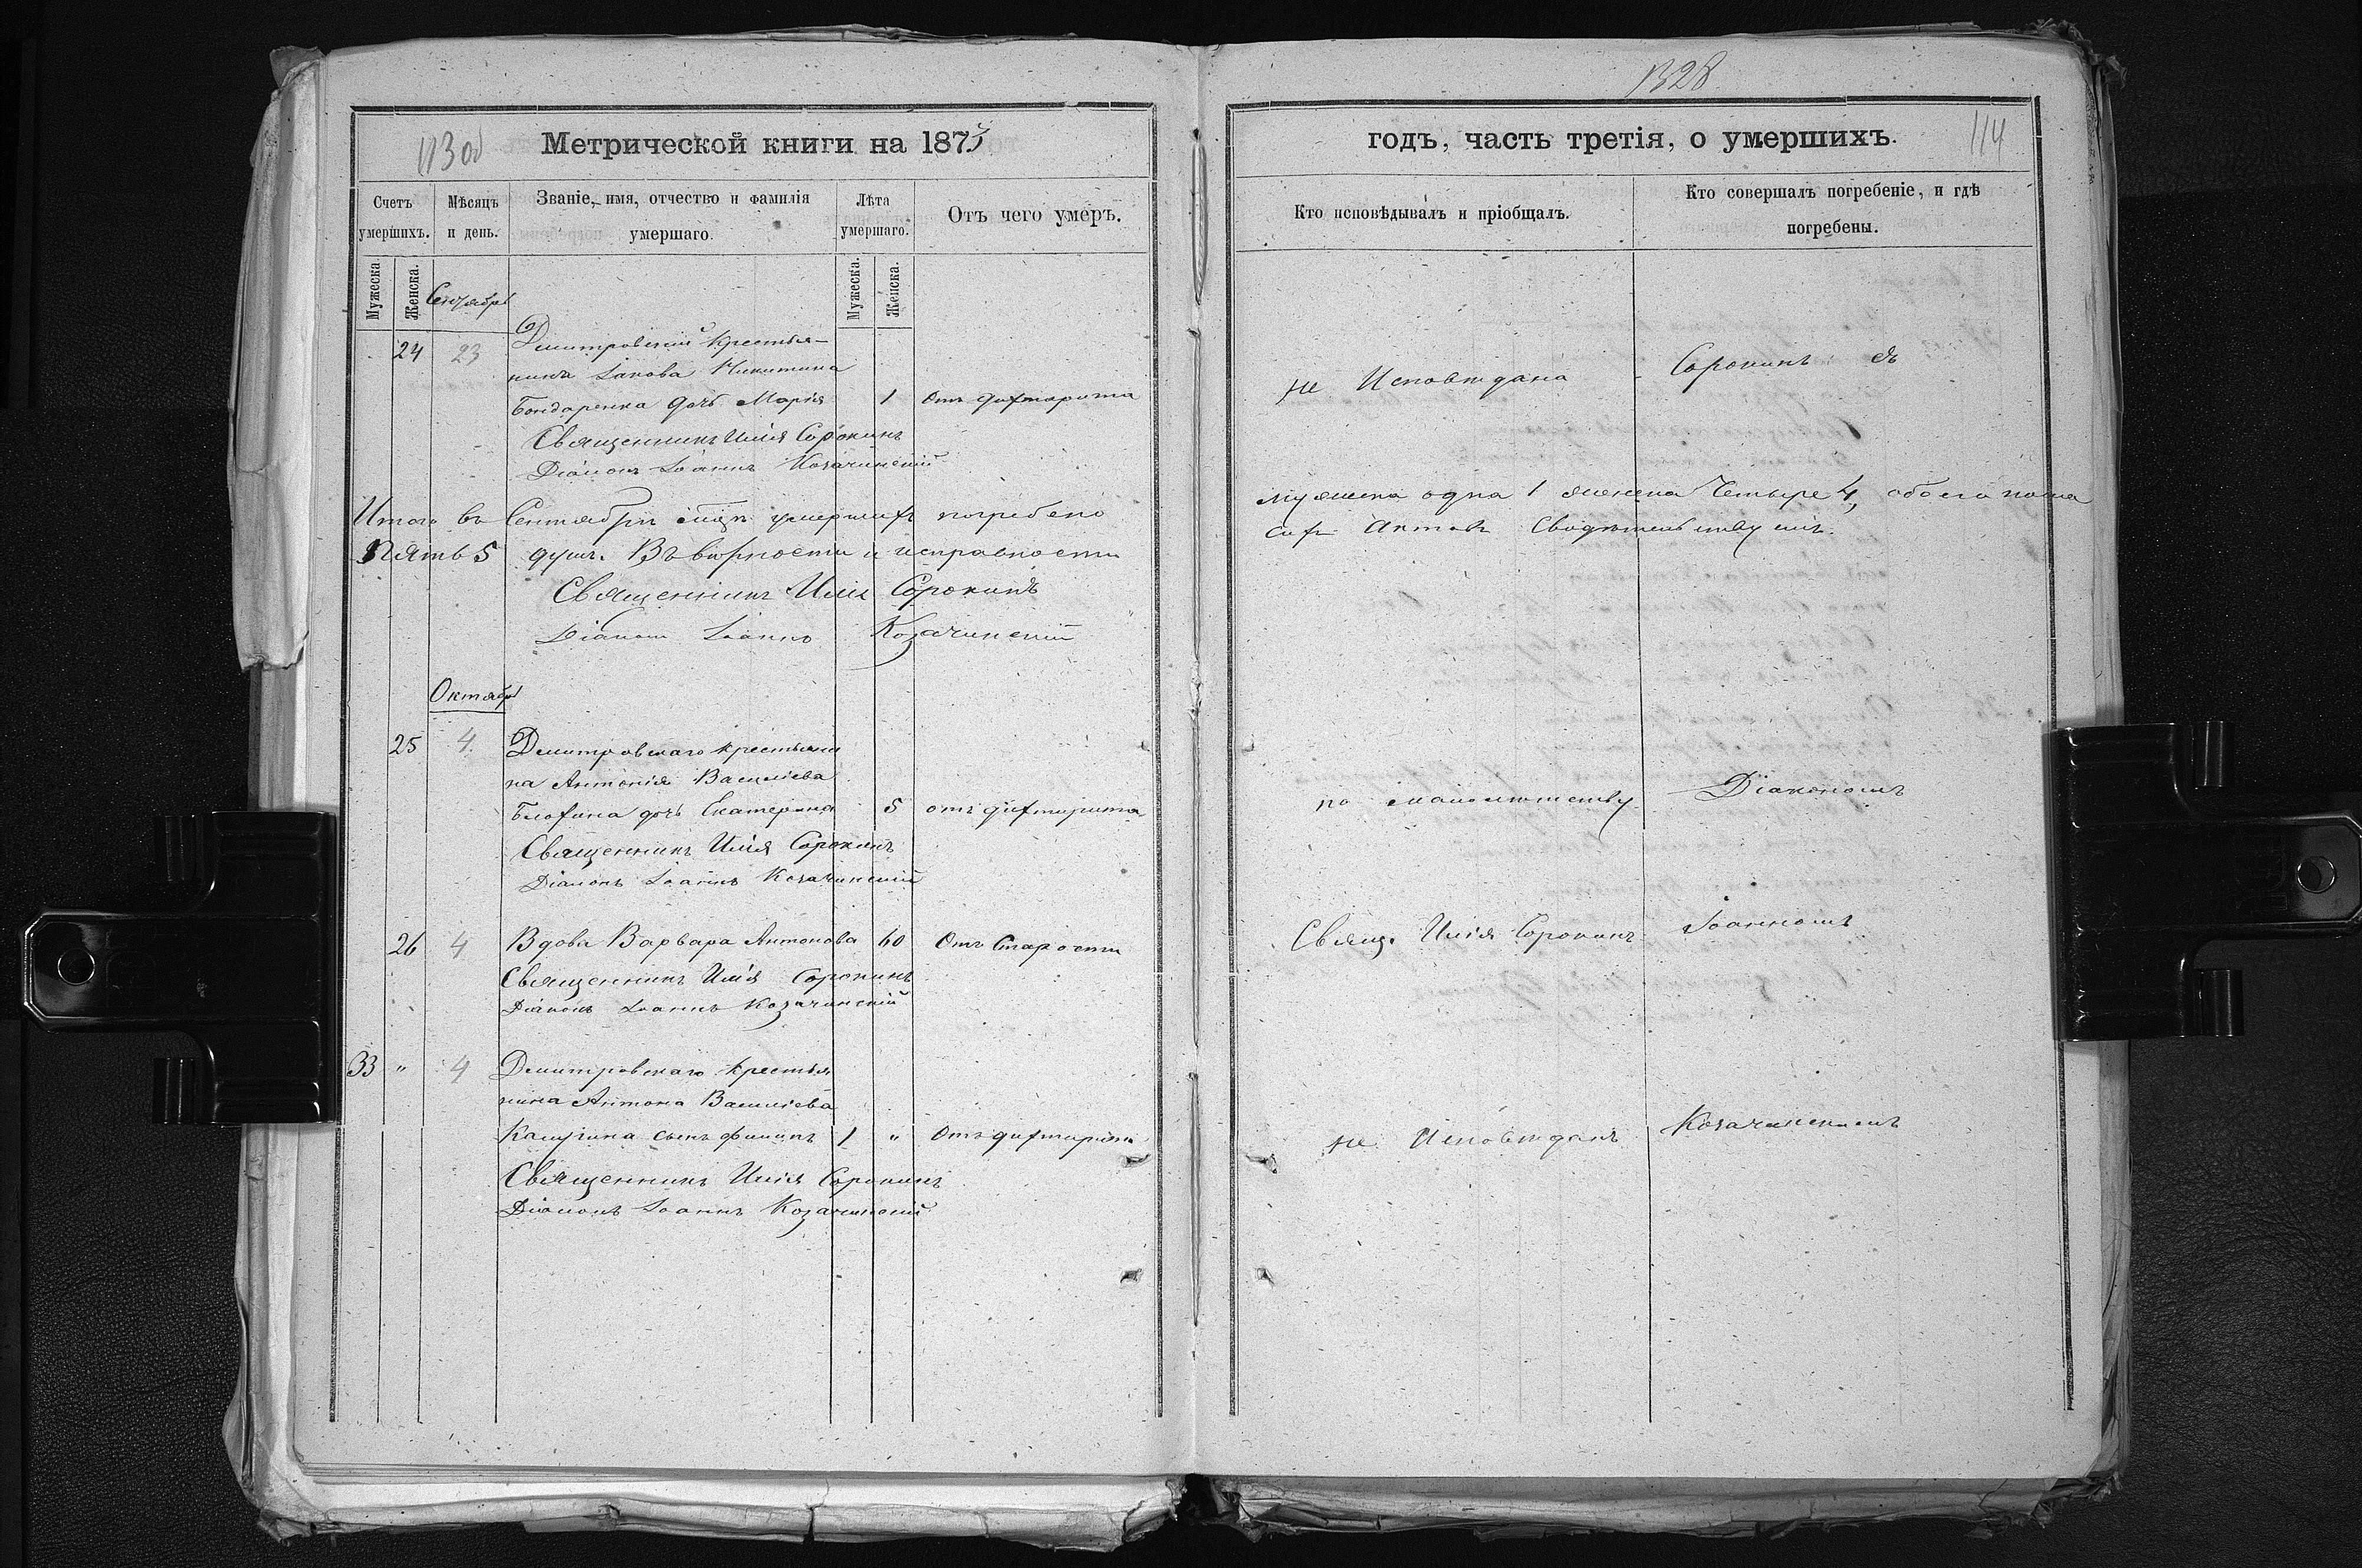 1328
113 об
Метрической книги на 1873
годъ, часть третія, о умершихъ.
114
Счетъ умершихъ.
Мѣсяцъ и день.
Званіе, имя, отчество и фамилія умершаго.
Лѣта умершаго.
Отъ чего умеръ.
Кто исповѣдывалъ и пріобщалъ.
Кто совершалъ погребеніе, и гдѣ погребены.
Мужеска.
Женска.
Сентябрь
Мужеска.
Женска.
24 23 Дмитровскій крестья-
нина Іакова Никитина
Бондаренка дочь Марія 1 Отъ дифтарита
не Исповѣдана Сорокинъ съ
Священникъ Илія Сорокинъ
Діаконъ Іоаннъ Козачинскій
Итого въ Сентябрѣ мцѣ умершихъ погребено
мужеска одна 1 женска Четыре 4, обоего пола
Пять 5 душъ. Въ вѣрности и исправности
сихъ Актовъ Свидѣтельствуемъ.
Священникъ Илія Сорокинъ
Діаконъ Іоаннъ Козачинскій
Октябрь
25 4. Дмитровскаго крестьяни
на Антонія Василіева
дочь Екатерина 5 отъ дифтирита
по малолѣтству Діакономъ
Священникъ Илія Сорокинъ
Діаконъ Іоаннъ Козачинскій
26 4 Вдова Варвара Антонова 60 Отъ Старости
Свящ. Илія Сорокинъ Іоанномъ
Священникъ Илія Сорокинъ
Діаконъ Іоаннъ Козачинскій
33 " 4 Дмитровскаго крестья
нина Антона Василіева
сынъ Филипъ 1 " Отъ дифтирита
не Исповѣданъ Козачинскимъ
Священникъ Илія Сорокинъ
Діаконъ Іоаннъ Козачинскій